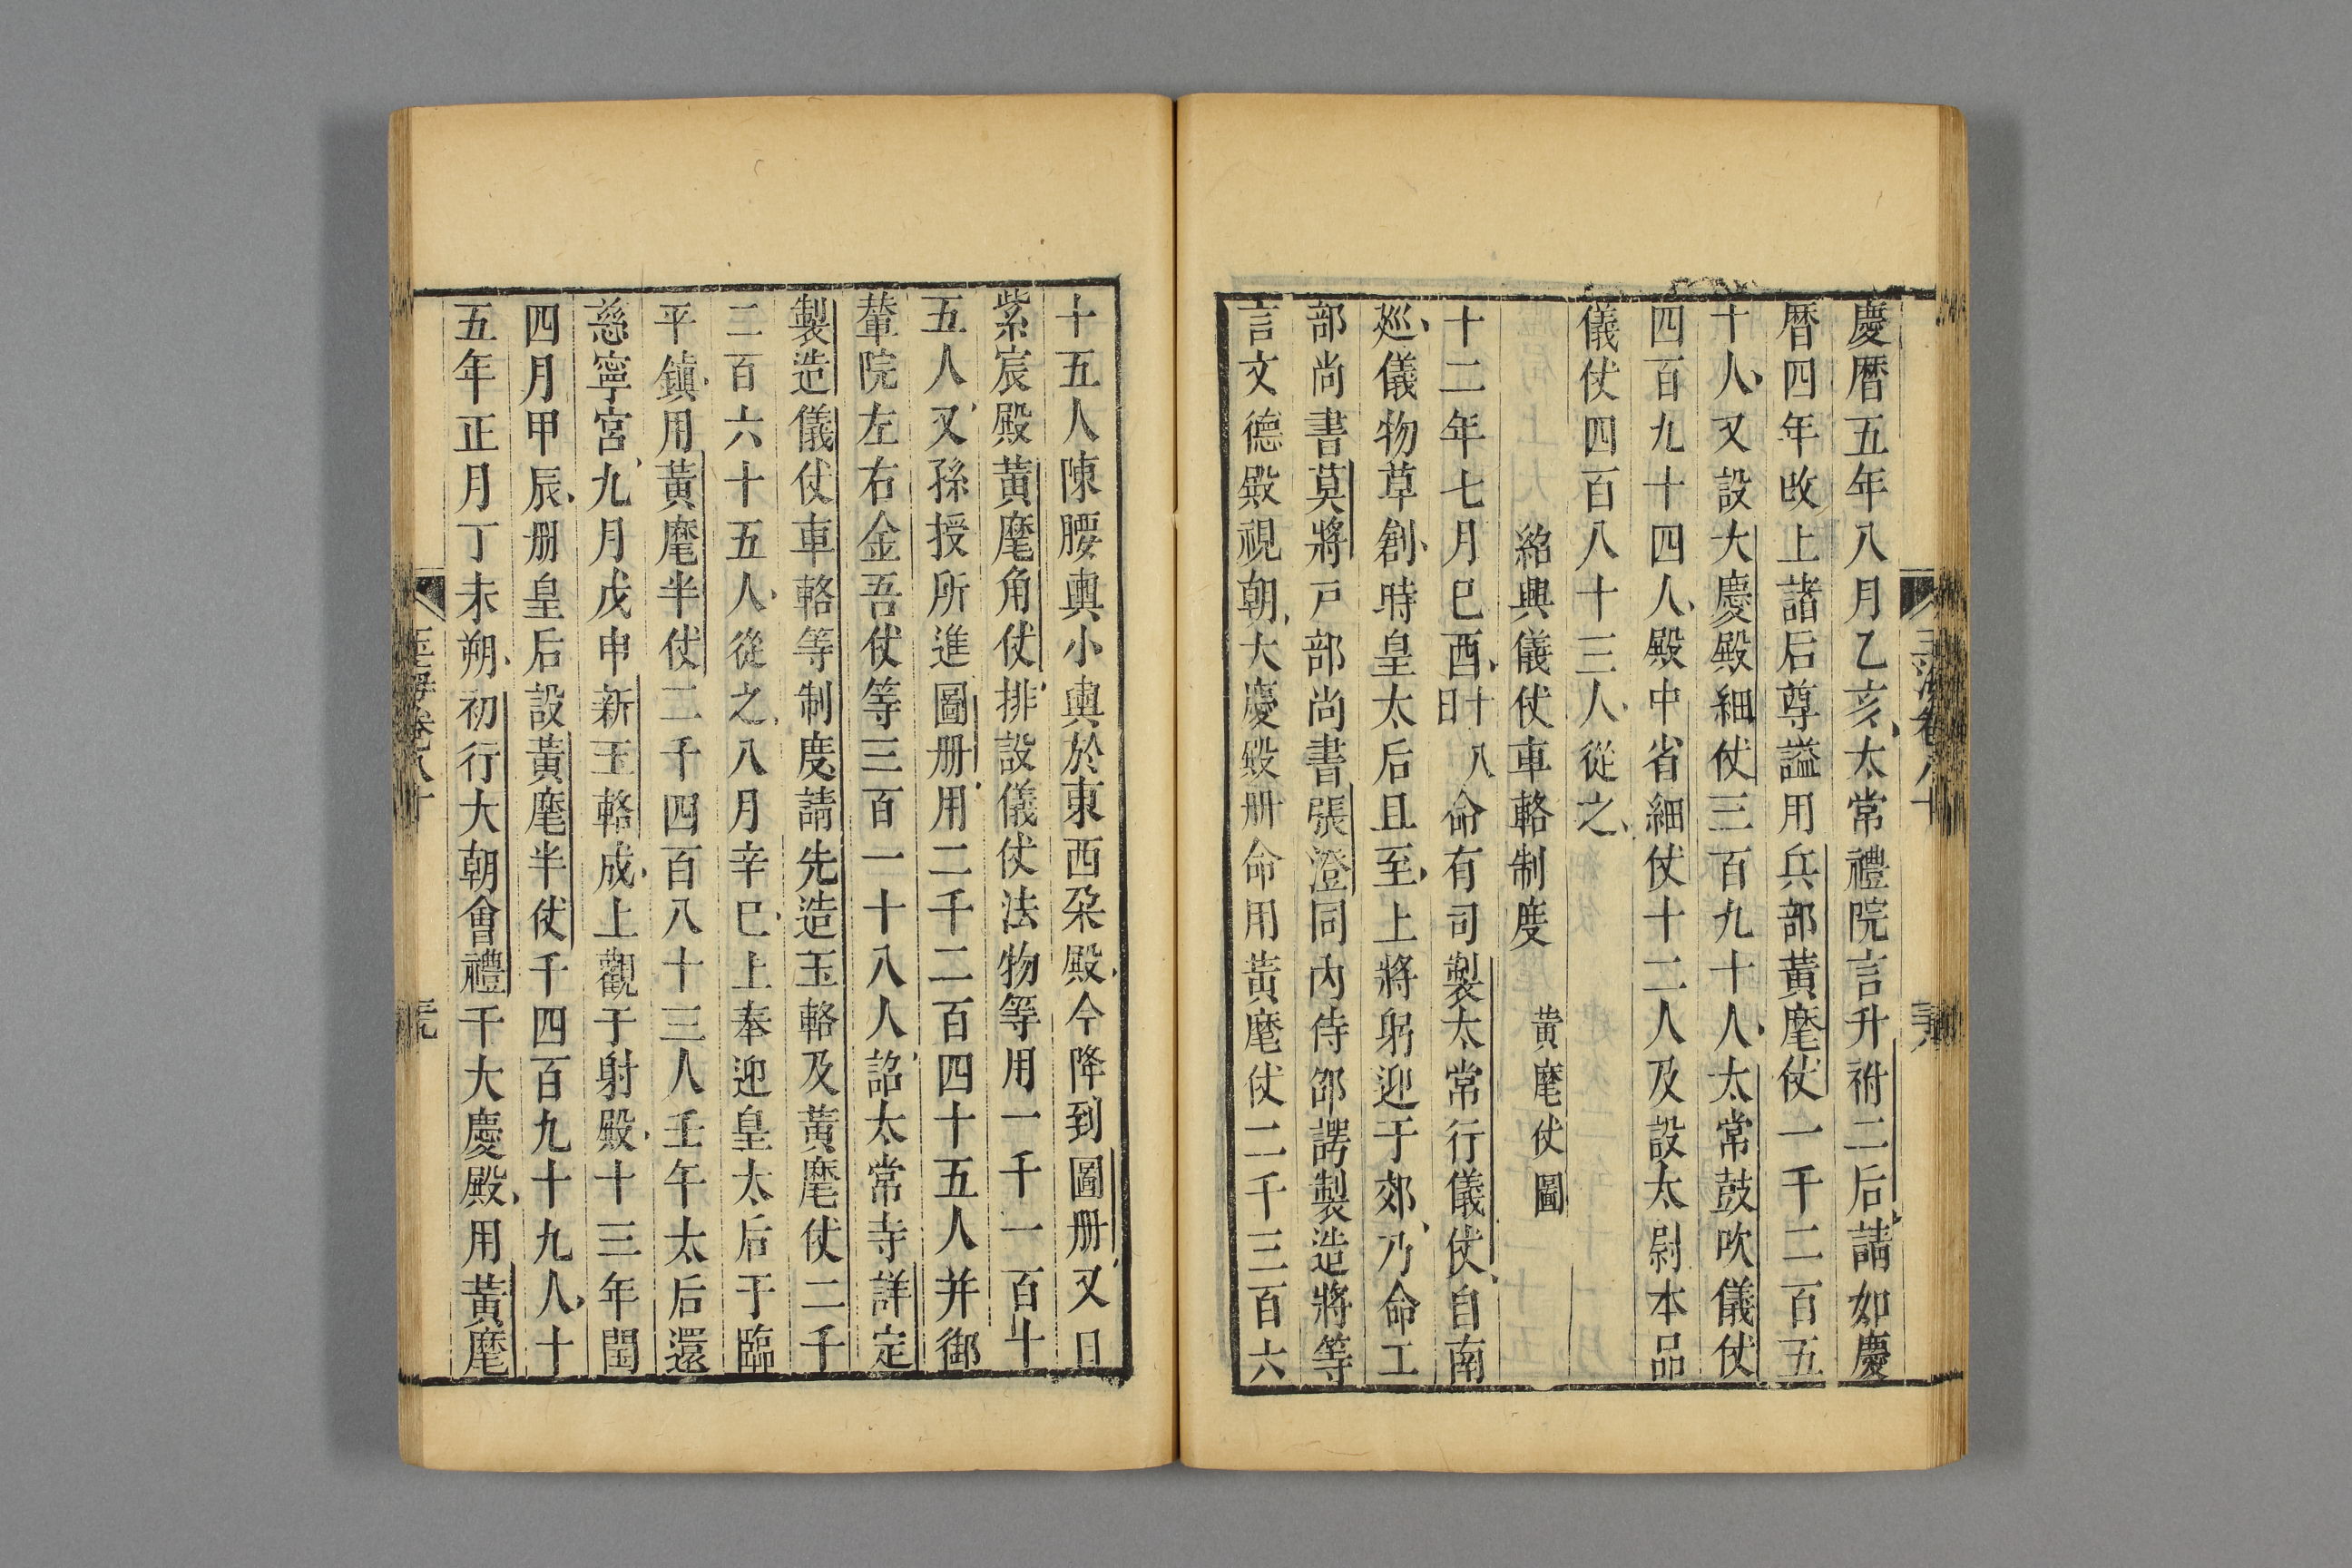 慶曆五年八月乙亥太常禮院言升祔二后請如慶
曆四年改上諸后尊謚用兵部黃麾仗一千二百五
十人又設大慶殿細仗三百九十人太常鼓吹儀仗
四百九十四人殿中省細仗十二人及設太尉本品
儀仗四百八十三人從之
紹興儀仗車輅制度 黃麾仗圖
十二年七月巳酉十八日命有司製太常行儀仗自南
廵儀物草創時皇太后且至上將躬迎于郊乃命工
部尚書莫將戸部尚書張澄同內侍邵諤製造將等
言文德殿視朝大慶殿冊命用黃麾仗二千三百六
十五人陳腰輿小輿於東西朵殿今降到圖冊又日
紫宸殿黃麾角仗排設儀仗法物等用一千一百十
五人又孫授所進圖冊用二千二百四十五人并御
輦院左右金吾仗等三百一十八人詔太常寺詳定
製造儀仗車輅等制度請先造玉輅及黃麾仗二千
二百六十五人從之八月辛巳上奉迎皇太后于臨
平鎮用黃麾半仗二千四百八十三人壬午太后還
慈寧宮九月戊申新玉輅成上觀于射殿十三年閏
四月甲辰冊皇后設黃麾半仗千四百九十九人十
五年正月丁未朔初行大朝會禮千大慶殿用黃麾